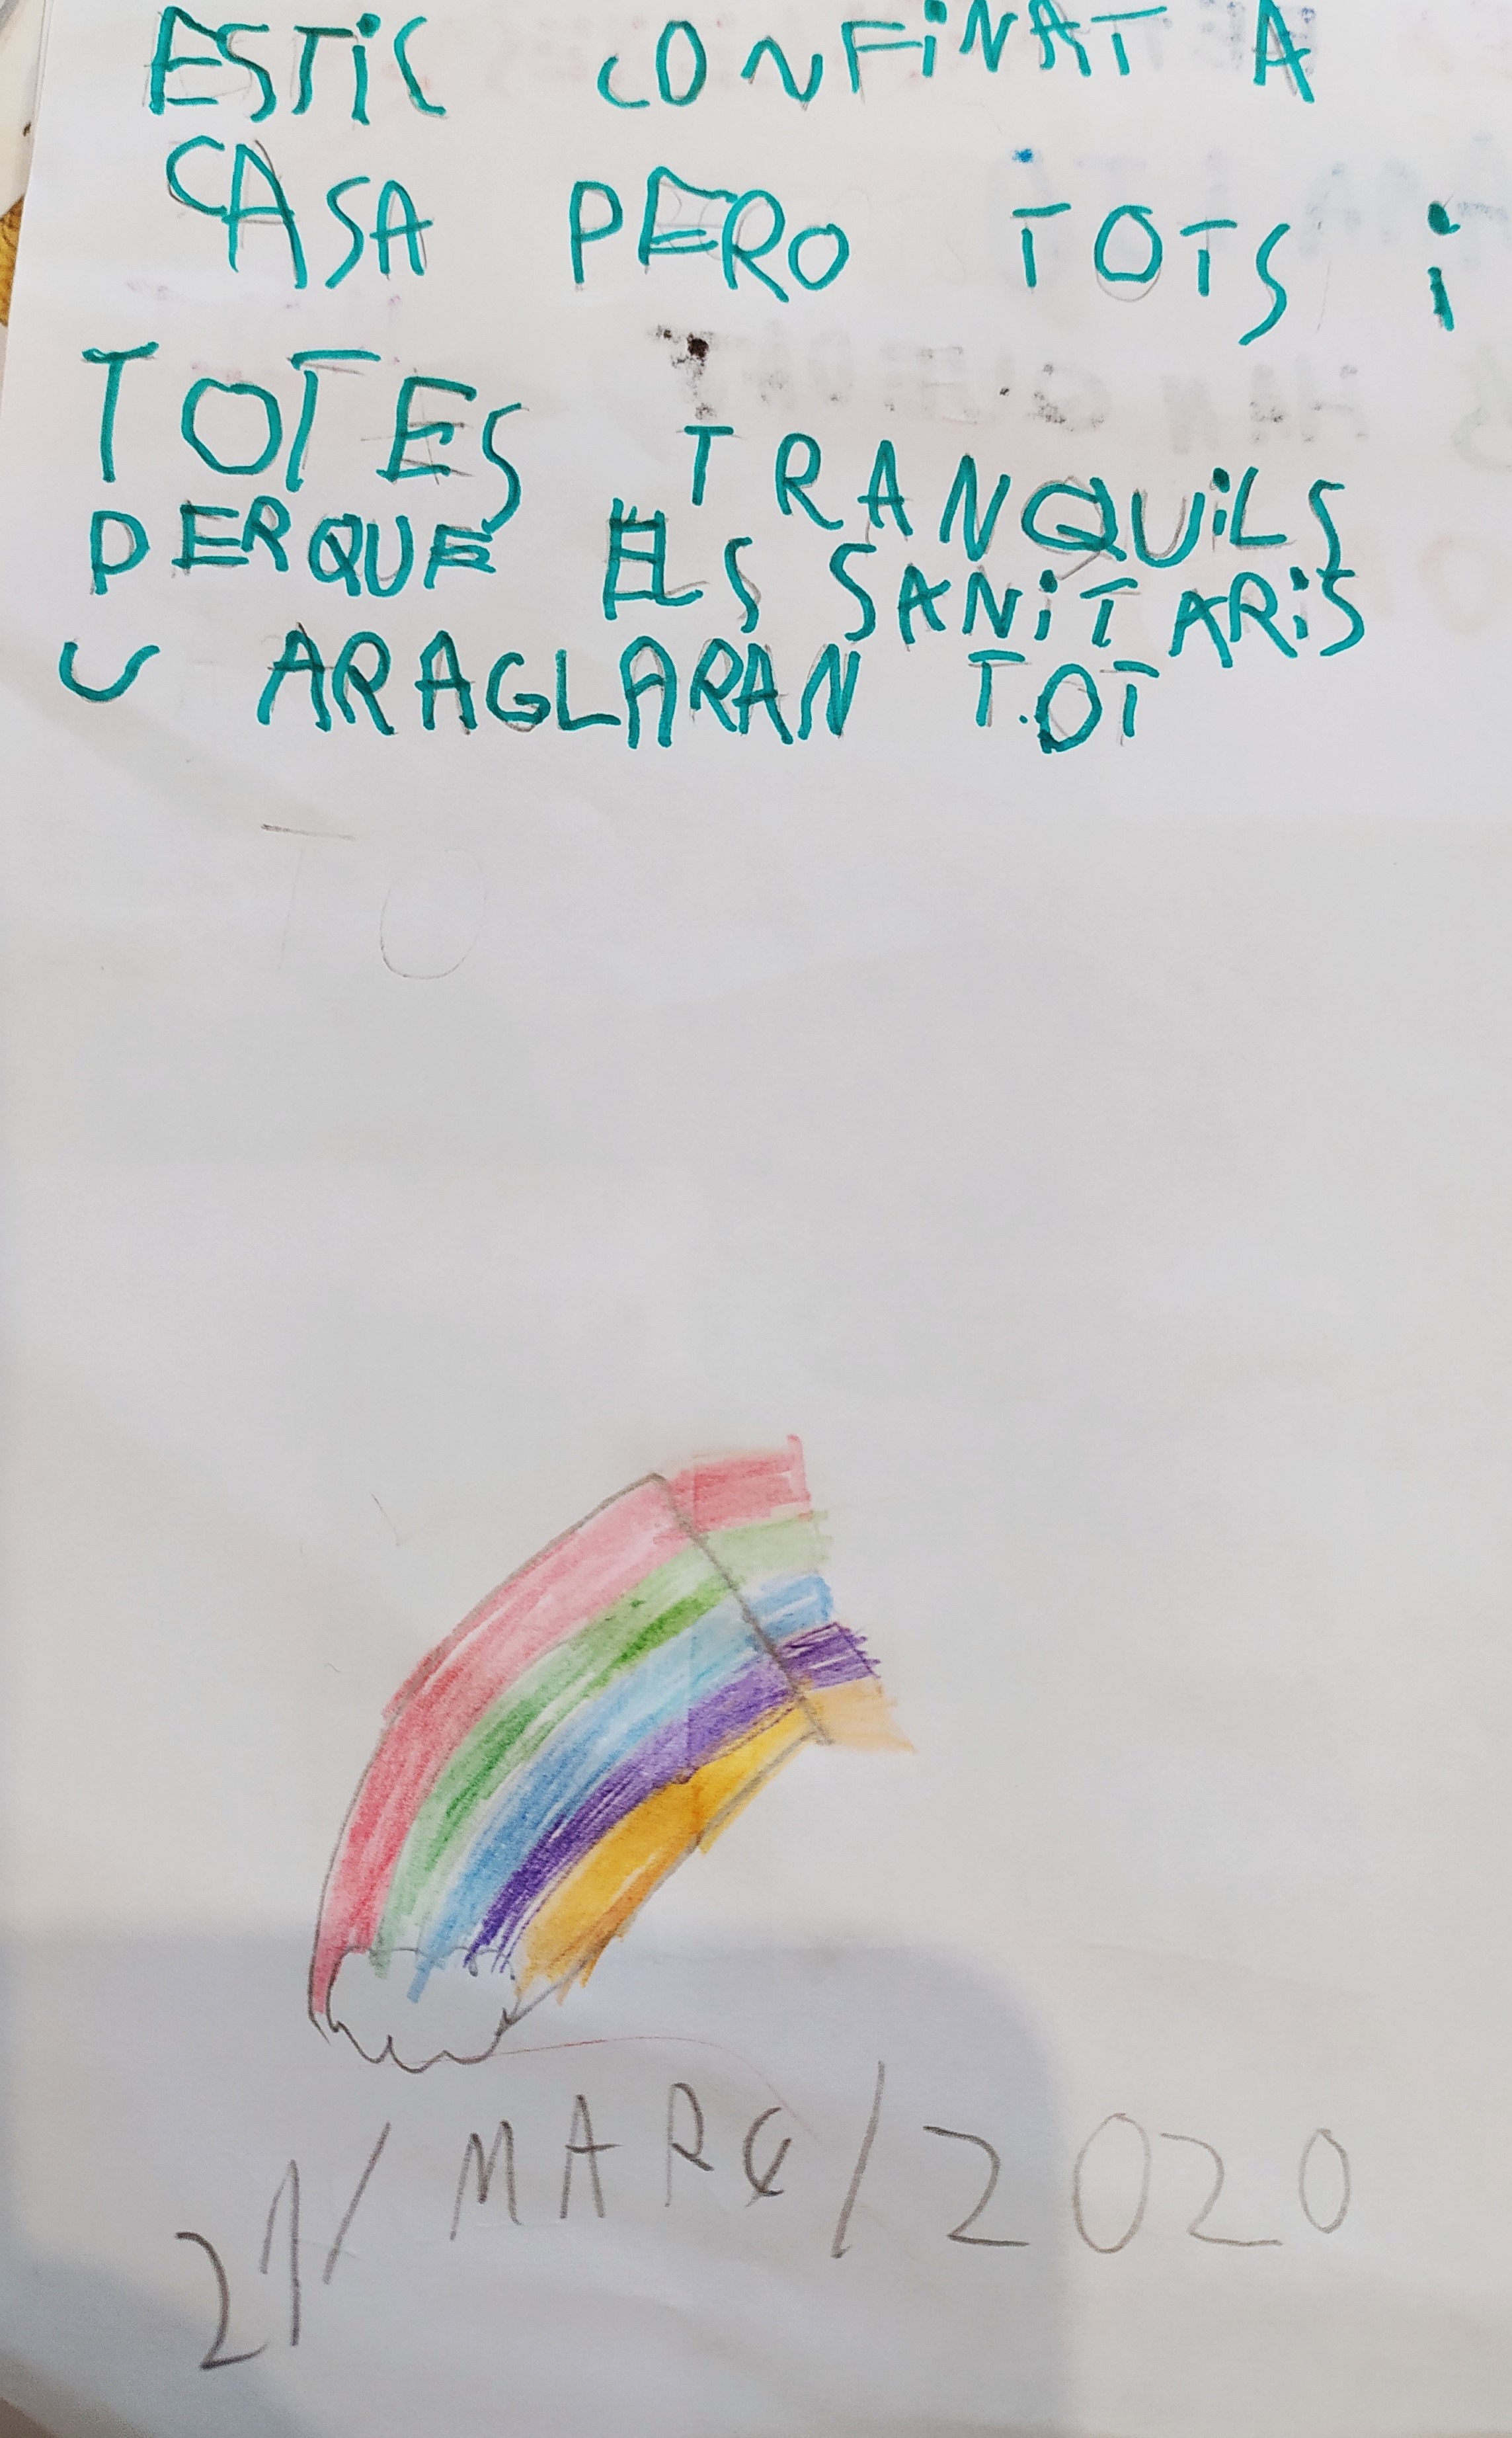 ESTiC CONFiNAT A
CASA PERO TOTS i
TOTES TRANQUiLS
PERQUE ELS SANiTARiS
U ARAGLARAN TOT
TO
21/MARÇ/2020